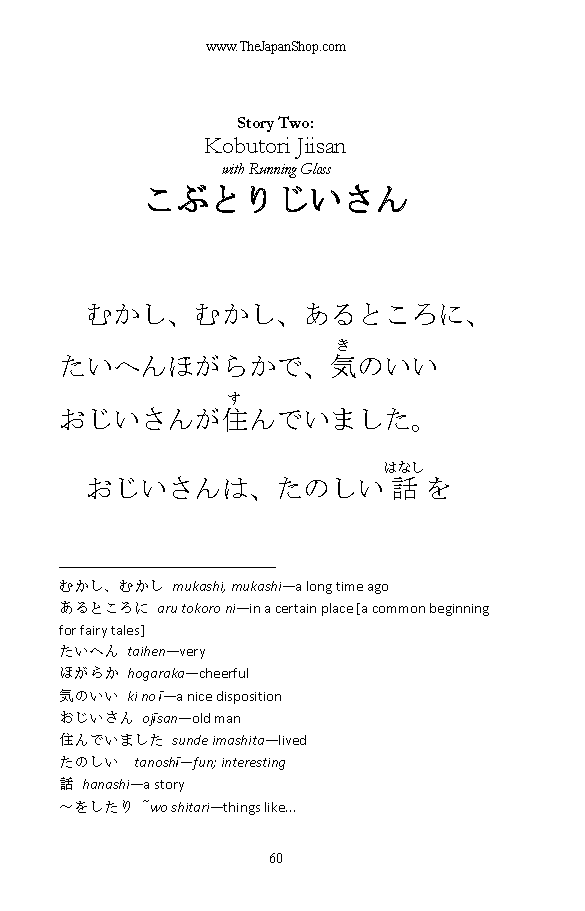 www.TheJapanShop.com
Story Two:
Kobutori Jiisan
with Running Gloss
こぶとりじいさん
むかし、むかし、あるところに、
き
たいへんほがらかで、気のいい
す
おじいさんが住んでいました。
はなし
おじいさんは、たのしい話を
むかし、むかし mukashi, mukashi—a long time ago
あるところに aru tokoro ni—in a certain place [a common beginning
for fairy tales]
たいへん taihen—very
ほがらか hogaraka—cheerful
気のいい ki no ī—a nice disposition
おじいさん ojīsan—old man
住んでいました sunde imashita—lived
たのしい tanoshī—fun; interesting
話 hanashi—a story
～をしたり ~wo shitari—things like...
60